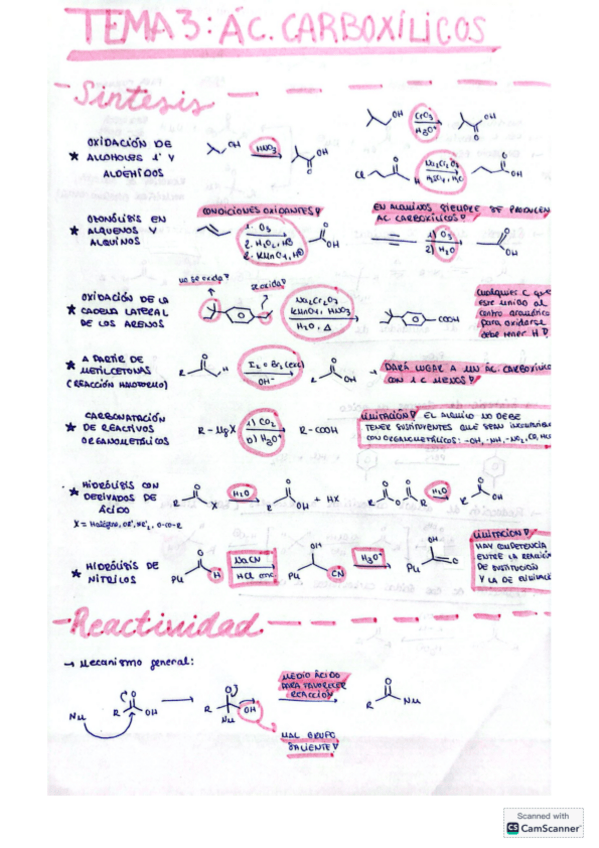 TEMA 3: ÁC. CARBOXÍLICOS
Síntesis
★ OXIDACIÓN DE
ALCOHOLES 1º Y
ALDEHÍDOS
OH
HNO3
O
OH
OH
CrO3
H3O+
O
OH
Cl
O
H
Na2Cr2O7
O
OH
★ OZONÓLISIS EN
ALQUENOS Y
ALQUINOS
CONDICIONES OXIDANTES!
1. O3
2. H2O2, H⊕
2. KMnO4, H⊕
O
OH
EN ALQUINOS SIEMPRE SE PRODUCEN
AC CARBOXÍLICOS!
1) O3
2) H2O
O
OH
★ OXIDACIÓN DE LA
CADENA LATERAL
DE LOS ARENOS
no se oxida!
se oxida!
Na2Cr2O7
KMnO4, HNO3
H2O, Δ
COOH
cualquier C que
este unido al
para oxidarse
debe tener H!
★ A PARTIR DE
METILCETONAS
(REACCIÓN HALOFORMO)
R
O
H
I2 o Br2 (exc)
OH-
R
O
OH
→ DARÁ LUGAR A UN ÁC. CARBOXÍLICO
CON 1 C MENOS!
★ CARBONATACIÓN
DE REACTIVOS
ORGANOMETÁLICOS
R-MgX
1) CO2
b) H3O+
R-COOH
LIMITACIÓN! EL ALQUILO NO DEBE
TENER SUSTITUYENTES QUE SEAN
CON ORGANOMETÁLICOS: -OH, -NH, -NO2,
★ HIDRÓLISIS CON
DERIVADOS DE
ÁCIDO
X = Halógeno, OR', NR'2, O-CO-R
R
O
X
H2O
R
O
OH
+ HX
R
O
O
O
R
H2O
R
O
OH
★ HIDRÓLISIS DE
NITRILOS
Ph
O
H
NaCN
HCl conc
OH
Ph
CN
H3O+
OH
Ph
O
LIMITACIÓN!
HAY COMPETENCIA
ENTRE LA REACCIÓN
DE SUSTITUCIÓN
Y LA DE
Reactividad
→ Mecanismo general:
Nu
R
O
OH
R
O
OH
Nu
MEDIO ÁCIDO
PARA FAVORECER
REACCIÓN
R
O
Nu
MAL GRUPO
SALIENTE!
Scanned with
CS CamScanner